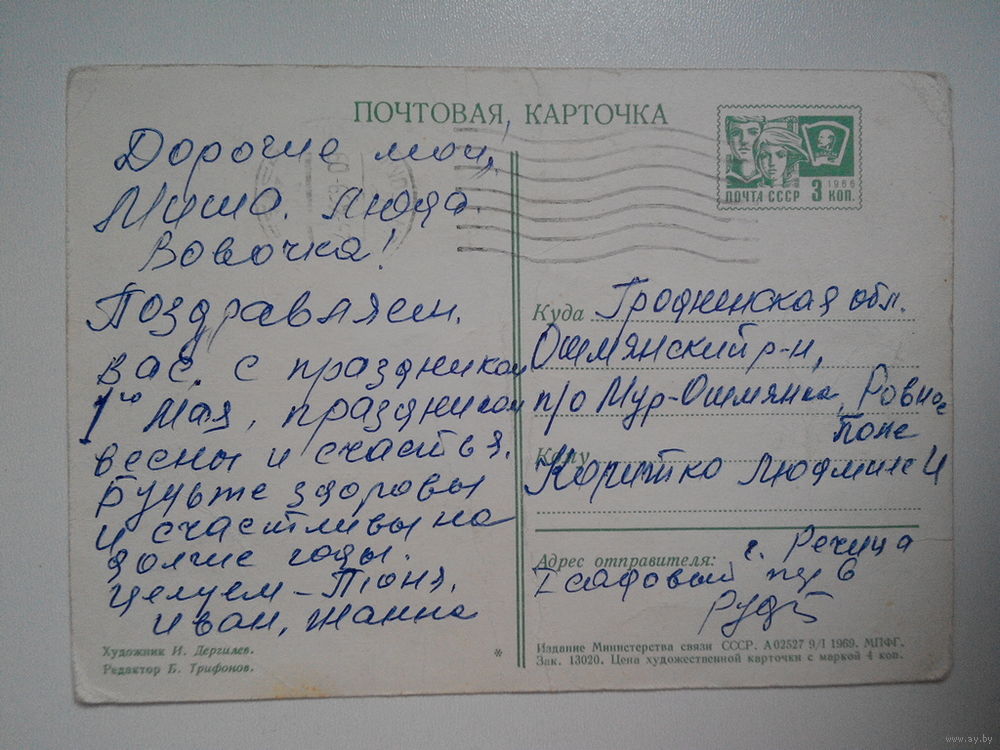 ПОЧТОВАЯ КАРТОЧКА
Дорогие мои,
Миша. Люда.
Вовочка!
Поздравляем.
вас, с праздником
1го Мая, праздником
весны и счастья.
Будьте здоровы
и счастливы на
долгие годы.
Целуем – Тоня,
Иван, Жанна
Художник И. Дергилев.
Редактор Б. Трифонов.
ПОЧТА СССР 1966 3 КОП.
Куда Гродненская обл.
Ошмянский р-н,
п/о Мур-Ошмянка, Ровное
Поле
Кому
Коритко Людмиле И
Адрес отправителя: г. Речица
I садовый пер 6
*
Издание Министерства связи СССР. А 02527 9/I 1969. МПФГ.
Зак. 13020. Цена художественной карточки с маркой 4 коп.
www.ay.by